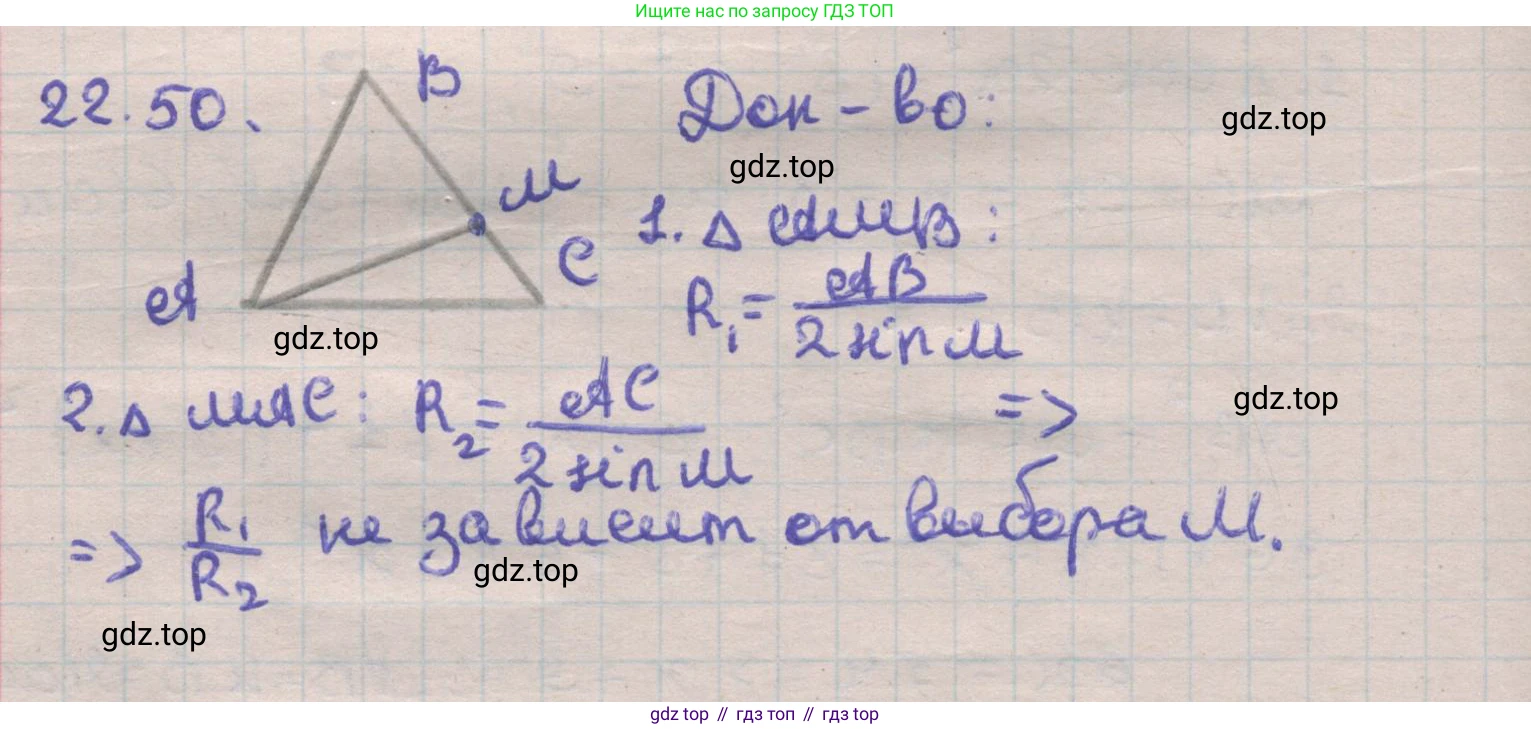 Ищите нас по запросу ГДЗ ТОП
22.50.
B
M
C
A
Док-во:
gdz.top
gdz.top
1. △ AMB:
R₁ = AB / 2 sin M
gdz.top
2. △ MAC: R₂ = AC / 2 sin M
=>
gdz.top
=> R₁/R₂ не зависит от выбора M.
gdz.top
gdz.top
gdz top // гдз топ // гдз top